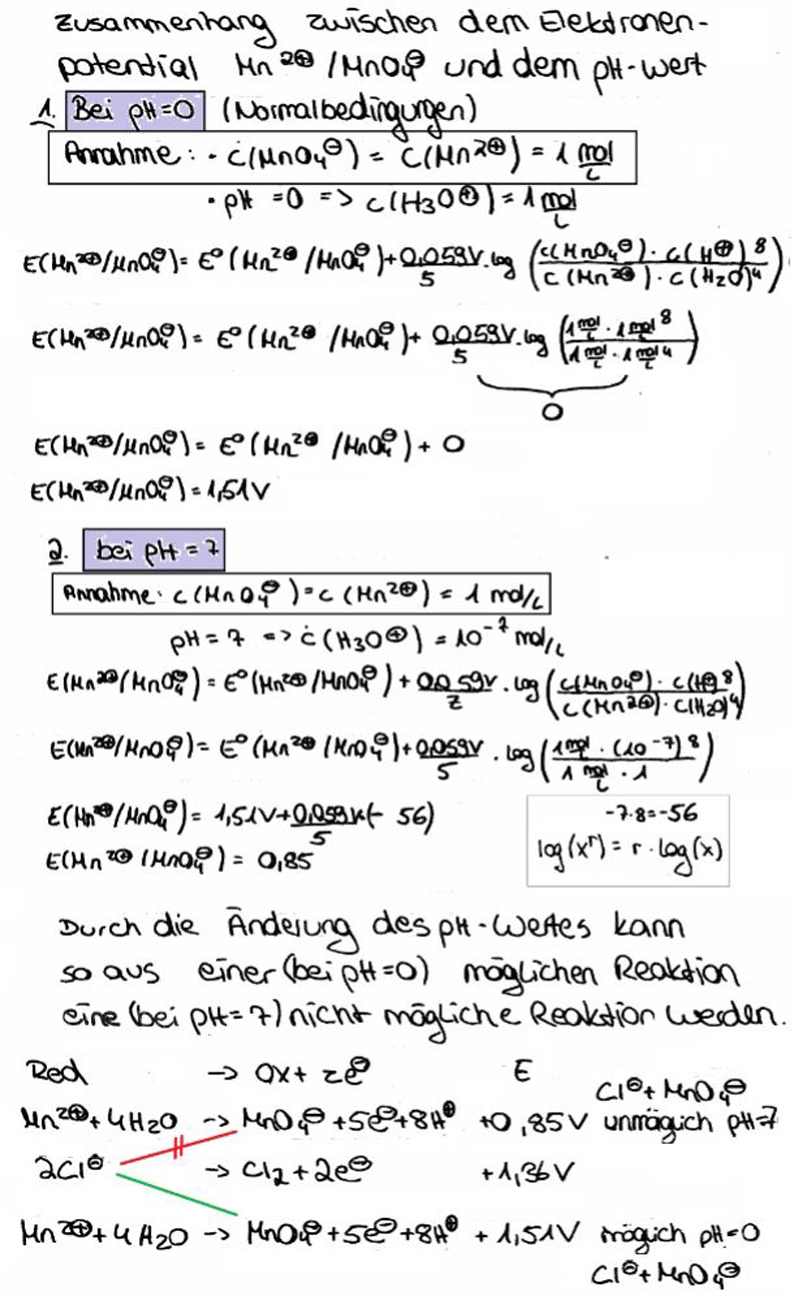 Zusammenhang zwischen dem Elektronen-
potential Mn²⊕/MnO₄⊖ und dem pH-Wert
1. Bei pH=0 (Normalbedingungen)
Annahme: · c(MnO₄⊖) = c(Mn²⊕) = 1 mol/L
· pH = 0 => c(H₃O⊕) = 1 mol/L
E(Mn²⊕/MnO₄⊖) = E⁰(Mn²⊕/MnO₄⊖) + 0,059V/5 · log (c(MnO₄⊖) · c(H⊕)⁸ / c(Mn²⊕) · c(H₂O)⁴)
E(Mn²⊕/MnO₄⊖) = E⁰(Mn²⊕/MnO₄⊖) + 0,059V/5 · log (1 mol/L · 1 mol/L⁸ / 1 mol/L · 1 mol/L⁴)
0
E(Mn²⊕/MnO₄⊖) = E⁰(Mn²⊕/MnO₄⊖) + 0
E(Mn²⊕/MnO₄⊖) = 1,51V
2. bei pH = 7
Annahme: c(MnO₄⊖) = c(Mn²⊕) = 1 mol/L
pH = 7 => c(H₃O⊕) = 10⁻⁷ mol/L
E(Mn²⊕/MnO₄⊖) = E⁰(Mn²⊕/MnO₄⊖) + 0,059V/z · log (c(MnO₄⊖) · c(H⊕)⁸ / c(Mn²⊕) · c(H₂O)⁴)
E(Mn²⊕/MnO₄⊖) = E⁰(Mn²⊕/MnO₄⊖) + 0,059V/5 · log (1 mol/L · (10⁻⁷)⁸ / 1 mol/L · 1)
E(Mn²⊕/MnO₄⊖) = 1,51V + 0,059V/5 (- 56)
-7·8=-56
E(Mn²⊕/MnO₄⊖) = 0,85
log(xʳ) = r · log(x)
Durch die Änderung des pH-Wertes kann
so aus einer (bei pH=0) möglichen Reaktion
eine (bei pH=7) nicht mögliche Reaktion werden.
Red -> Ox + ze⊖ E
Cl⊖ + MnO₄⊖
Mn²⊕ + 4H₂O -> MnO₄⊖ + 5e⊖ + 8H⊕ +0,85V unmöglich pH=7
2Cl⊖ -> Cl₂ + 2e⊖ +1,36V
Mn²⊕ + 4H₂O -> MnO₄⊖ + 5e⊖ + 8H⊕ +1,51V möglich pH=0
Cl⊖ + MnO₄⊖